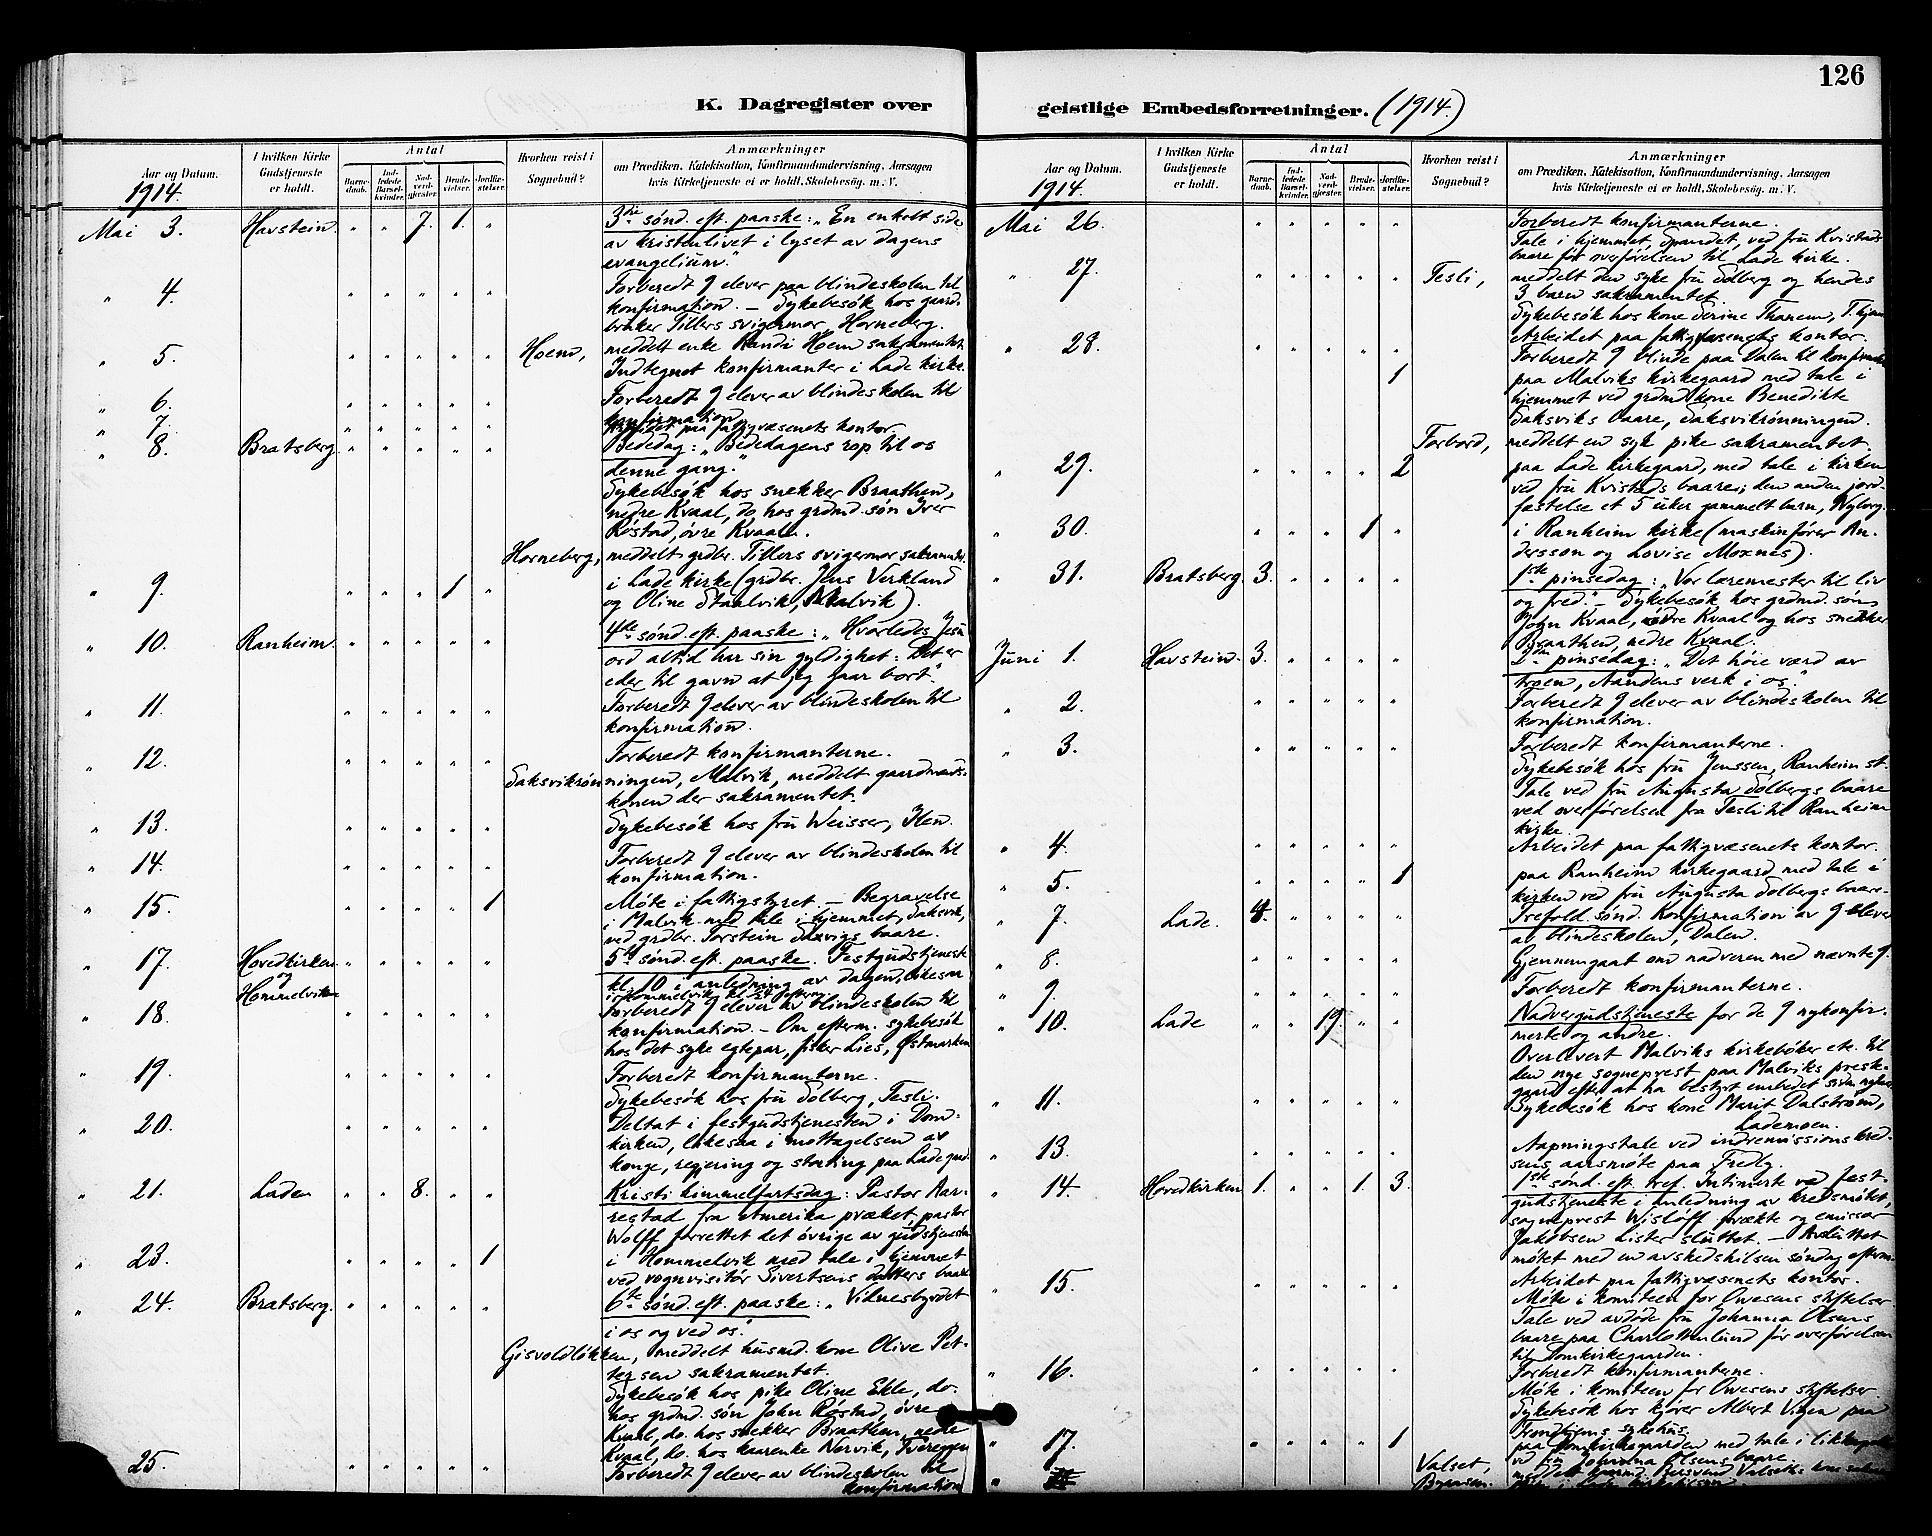 126
K. Dagregister over geistlige Embedsforretninger. (1914.)
Aar og Datum.
I hvilken Kirke Gudstjeneste er holdt.
Antal
Barnedaab.
Indledede Barselkvinder.
Nadverdgjester.
Brudevielser.
Jordfæstelser.
Hvorhen reist i Sognebud?
Anmærkninger
om Prædiken, Katekisation, Konfirmandundervisning, Aarsagen
hvis Kirketjeneste ei er holdt, Skolebesøg. m. V.
1914.
Mai 3. Havstein. " " 7. 1. " 3die sønd. eft. paaske: "En enkelt side
av kristenlivet i lyset av dagens
evangelium."
" 4. " " " " " Forberedt 9 elever paa blindeskolen til
konfirmation. – Sykebesøk hos gaard-
bruker Tillers svigermor, Horneberg.
" 5. " " " " " Hoem, meddelt enke Randi Hoem sakramentet.
Indtegnet konfirmanter i Lade kirke.
" 6. " " " " " Forberedt 9 elever av blindeskolen til
konfirmation
" 7. " " " " " Arbeidet paa fattigvæsenets kontor.
" 8. Bratsberg. " " " " " Bededag: "Bededagens rop til os
denne gang."
Sykebesøk hos snekker Braathen,
nedre Kvaal, do hos grdmd. søn Iver
Røstad, øvre Kvaal.
Horneberg, meddelt grdbr. Tillers svigermor sakramentet.
" 9. " " " 1 " i Lade kirke (grdbr. Jens Verkland
og Oline Staalvik, Malvik).
" 10. Ranheim. " " " " " 4de sønd. eft. paaske: "Hvorledes Jesu
ord altid har sin gyldighet: Det er
eder til gavn at jeg gaar bort."
" 11. " " " " " Forberedt 9 elever av blindeskolen til
konfirmation.
" 12. " " " " " Forberedt konfirmanterne.
Saksvikrønningen, Malvik, meddelt gaardmands-
konen der sakramentet.
" 13. " " " " " Sykebesøk hos fru Weisser, Ilen.
" 14. " " " " " Forberedt 9 elever av blindeskolen til
konfirmation.
" 15. " " " " 1 Møte i fattigstyret. – Begravelse
i Malvik med tale i hjemmet, Saksvik,
ved grdbr. Torstein Saxvigs baare.
" 17. Hovedkirken og Hommelviken " " " " " 5te sønd. eft. paaske. Festgudstjeneste
kl. 10 i anledning av dagen, likesaa
i Hommelvik kl. 3½ efterm.
" 18. " " " " " Forberedt 9 elever av blindeskolen til
konfirmation. – Om efterm. sykebesøk
hos det syke egtepar, fisker Lies, Østmarken
" 19. " " " " " Forberedt konfirmanterne.
Sykebesøk hos fru Solberg, Tesli.
" 20. " " " " " Deltat i festgudstjenesten i Dom-
kirken, likesaa i mottagelsen av
konge, regjering og storting paa Ladegaard.
" 21. Laden " " 8. " " Kristi himmelfartsdag: Pastor Aar-
restad fra Amerika præket, pastor
Wolff forrettet det øvrige av gudstjenesten
" 23. " " " " 1 i Hommelvik med tale i hjemmet
ved vognvisitør Sivertsens datters baare
" 24. Bratsberg. " " " " " 6te sønd. eft. paaske: "Vidnesbyrdet
i os og ved os."
Gisvoldløkken, meddelt husmd. kone Olive Pet-
tersen sakramentet.
Sykebesøk hos pike Oline Ekle, do.
hos grdmd. søn John Røstad, øvre
Kvaal, do. hos snekker Braathen, nedre
Kvaal, do. hos kaarenke Nervik, Tvereggen
25. " " " " Forberedt 9 elever av blindeskolen til
konfirmation
Aar og Datum.
I hvilken Kirke Gudstjeneste er holdt.
Antal
Barnedaab.
Indledede Barselkvinder.
Nadverdgjester.
Brudevielser.
Jordfæstelser.
Hvorhen reist i Sognebud?
Anmærkninger
om Prædiken, Katekisation, Konfirmandundervisning, Aarsagen
hvis Kirketjeneste ei er holdt, Skolebesøg. m. V.
1914.
Mai 26. " " " " " Forberedt konfirmanterne.
Tale i hjemmet, Spandet, ved fru Kvistads
baare før overførelsen til Lade kirke.
" 27. " " " " " Tesli, meddelt den syke fru Solberg og hendes
3 barn sakramentet.
Sykebesøk hos kone Serine Thanem, T.hjem
" 28. " " " " " Arbeidet paa fattigvæsenets kontor.
Forberedt 9 blinde paa Dalen til konfirmation
1 paa Malviks kirkegaard med tale i
hjemmet ved grdmd. kone Benedikte
Saksviks baare, Saksvikrønningen.
Torbord, meddelt en syk pike sakramentet.
" 29. " " " " 2 paa Lade kirkegaard, med tale i kirken
ved fru Kvistads baare; den anden jord-
fæstelse et 5 uker gammelt barn, Nyborg.
" 30. " " " 1 " i Ranheim kirke (maskinfører An-
dersson og Lovise Moxnes).
" 31. Bratsberg. 3. " " " " 1ste pinsedag: "Vor læremester til liv
og fred." – Sykebesøk hos grdmd. søn
John Kvaal, nedre Kvaal og hos snekker
Braathen, nedre Kvaal.
Juni 1. Havstein. 3. " " " " 2den pinsedag: "Det høie værd av
troen, Aandens verk i os."
" 2. " " " " " Forberedt 9 elever av blindeskolen til
konfirmation.
" 3. " " " " " Forberedt konfirmanterne.
Sykebesøk hos fru Jenssen, Ranheim st.
Tale ved fru Augusta Solbergs baare
ved overførelsen fra Tesli til Ranheim
kirke.
" 4. " " " " " Arbeidet paa fattigvæsenets kontor.
" 5. " " " " 1 paa Ranheim kirkegaard med tale i
kirken ved fru Augusta Solbergs baare.
" 7. Lade. 4. " " " " Trefold. sønd. Konfirmation av 9 elever
av blindeskolen, Dalen.
" 8. " " " " " Gjennemgaat om nadveren med nævnte 9.
" 9. " " " " " Forberedt konfirmanterne.
" 10. Lade " " 19. " " Nadvergudstjeneste for de 9 nykonfir-
merte og andre.
Overlevert Malviks kirkebøker etc. til
den nye sogneprest paa Malviks preste-
gaard efter at ha bestyrt embedet siden nytaar
" 11. " " " " " Sykebesøk hos kone Marit Dalstrøm,
Lademoen.
" 13. " " " " " Aapningstale ved indremissionskred-
sens aarsmøte paa Fredly.
" 14. Hovedkirken 1. " " 1. 3. 1ste sønd. eft. tref. Intimerte ved fest-
gudstjeneste i anledning av kredsmøtet,
sogneprest Wisløff prækte og emissær
Jakobsen Lister sluttet. – Avsluttet
møtet med en avskedshilsen søndag efterm.
" 15. " " " " " Arbeidet paa fattigvæsenets kontor.
Møte i komiteen for Owesens stiftelser.
Tale ved avdøde fru Johanna Olsens
baare paa Charlottenlund før overførelsen
til Domkirkegaarden.
" 16. " " " " " Forberedt konfirmanterne.
Møte i komiteen for Owesens stiftelser.
Sykebesøk hos kjører Albert Vigen paa
Trondhjems sykehus
" 17. " " " " 1 paa Domkirkegaarden med tale i
ved fru Johanna Olsens baare.
Valset, Bynesset. meddelt
"